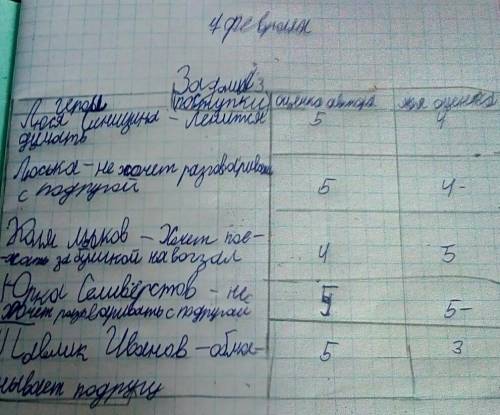 4 февраля
Задание 3
герои (поступки) оценка автора моя оценка
Люся Синицина - Ленится 5 4
думать
Люська - не хочет разговаривать
с подругой 5 4-
Коля Лыков - Хочет пое-
-хать за булкой на вокзал 4 5
Юрка Селивёрстов - не 5 5-
хочет разговаривать с подругой
Павлик Иванов - обма- 5 3
нывает подругу